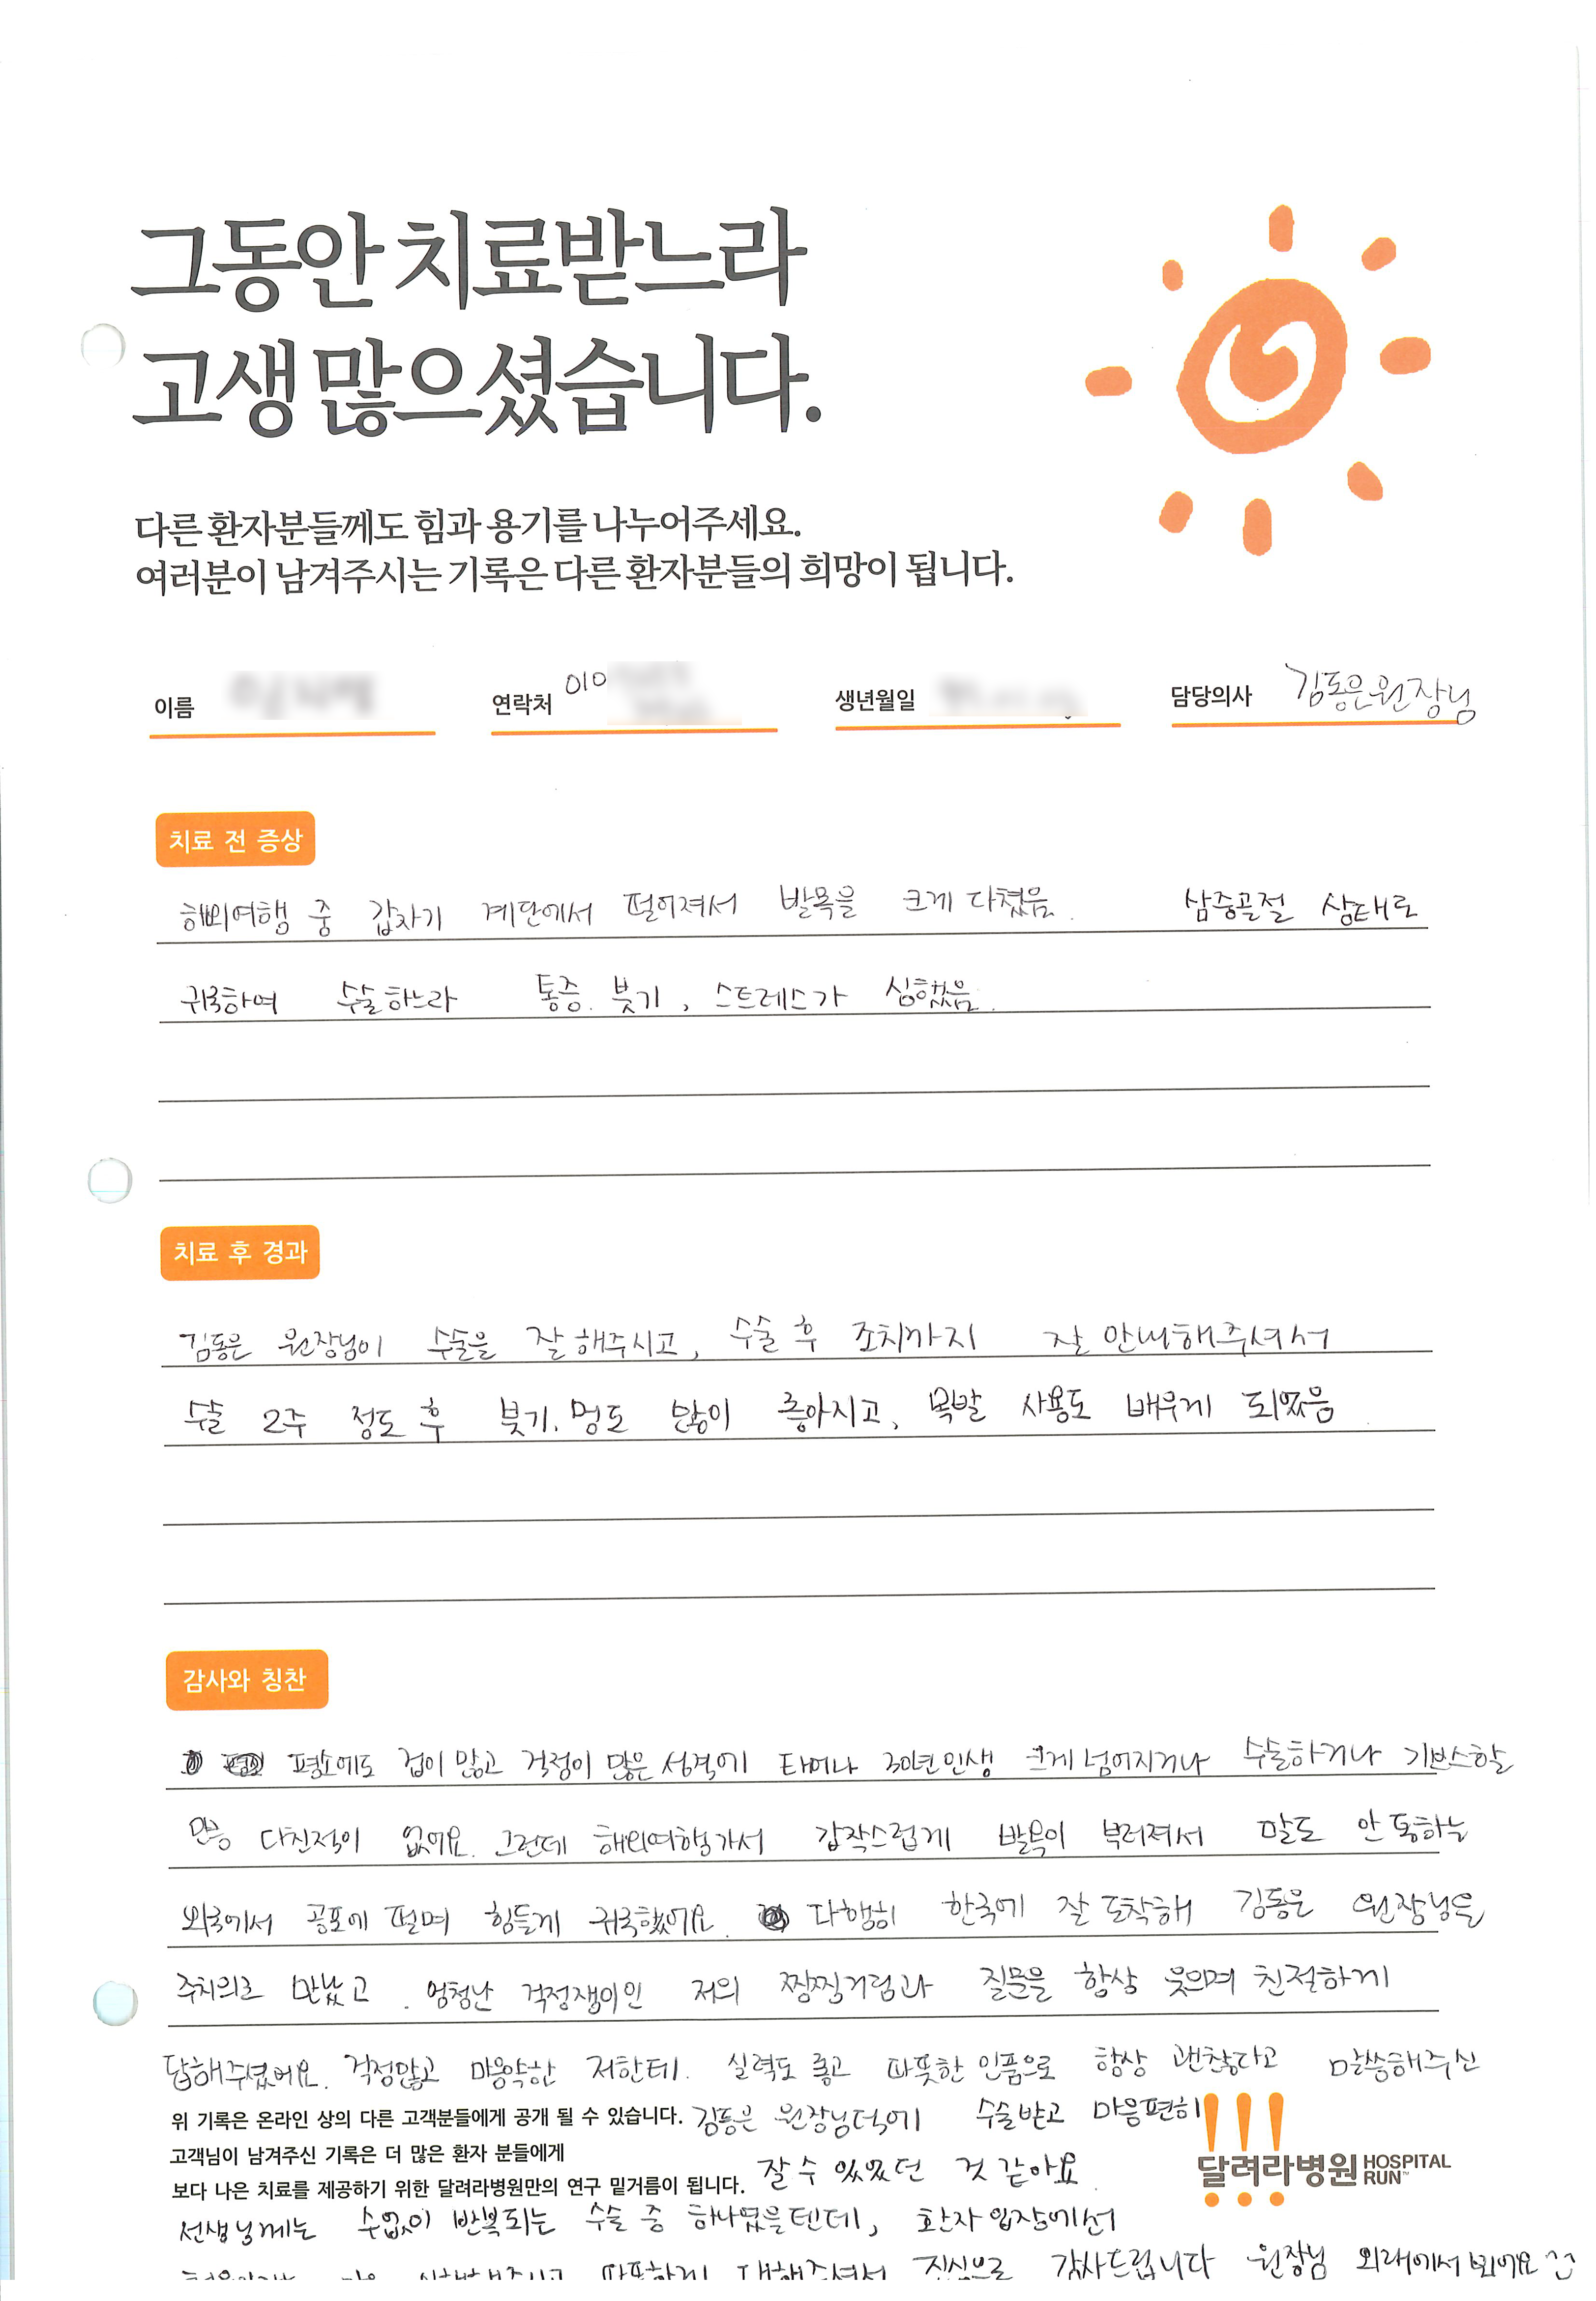 그동안 치료받느라
고생 많으셨습니다.
다른 환자분들께도 힘과 용기를 나누어주세요.
여러분이 남겨주시는 기록은 다른 환자분들의 희망이 됩니다.
이름 연락처 010 생년월일 담당의사 김동은 원장님
치료 전 증상
해외여행 중 갑자기 계단에서 떨어져서 발목을 크게 다쳤음. 삼중골절 상태로
귀국하여 수술하느라 통증. 붓기, 스트레스가 심했음.
치료 후 경과
김동은 원장님이 수술을 잘 해주시고, 수술 후 조치까지 잘 안내해주셔서
수술 2주 정도 후 붓기. 멍도 많이 좋아지고, 목발 사용도 배우게 되었음
감사와 칭찬
평소에도 겁이 많고 걱정이 많은 성격이 태어나 30년 인생 크게 넘어지거나 수술하거나 기브스할
만큼 다친적이 없어요. 그런데 해외여행가서 갑작스럽게 발목이 부러져서 말도 안 통하는
외국에서 공포에 떨며 힘들게 귀국했어요. 다행히 한국에 잘 도착해 김동은 원장님을
주치의로 만났고. 엄청난 걱정쟁이인 저의 찡찡거림과 질문을 항상 웃으며 친절하게
답해주셨어요. 걱정많고 마음약한 저한테. 실력도 좋고 따뜻한 인품으로 항상 괜찮다고 말씀해주신
위 기록은 온라인 상의 다른 고객분들에게 공개 될 수 있습니다. 김동은 원장님덕에 수술받고 마음편히
고객님이 남겨주신 기록은 더 많은 환자 분들에게
보다 나은 치료를 제공하기 위한 달려라병원만의 연구 밑거름이 됩니다. 잘 수 있었던 것 같아요
달려라병원 HOSPITAL RUN™
선생님께는 수없이 반복되는 수술 중 하나였을텐데, 환자 입장에선
진심으로 감사드립니다 원장님 외래에서 뵈어요